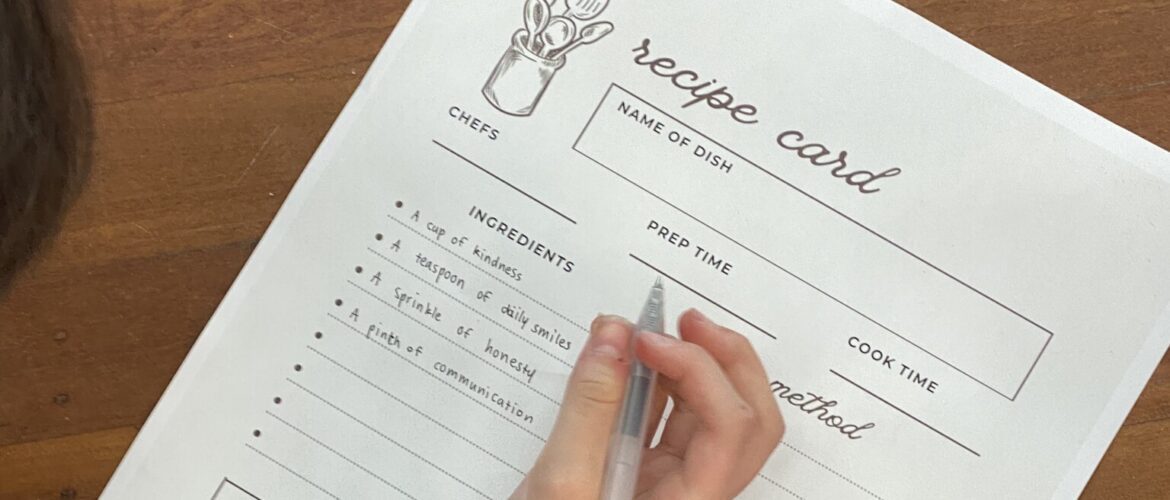 recipe card
CHEFS
NAME OF DISH
INGREDIENTS
A cup of kindness
A teaspoon of daily smiles
A Sprinkle of honesty
A pinch of communication
PREP TIME
COOK TIME
method